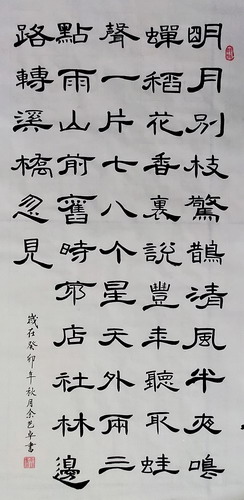 明月別枝驚鵲清風半夜鳴
蟬稻花香裏說豐年聽取蛙
聲一片七八个星天外兩三
點雨山前舊時茆店社林邊
路轉溪橋忽見
歲在癸卯年秋月余邑卓書